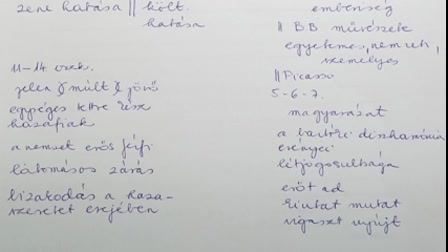 zene hatása || költ.
hatása
11–14 vszk.
jelen múlt jövő
egységes lettre kész
hazafiak
a nemzet erős férfi
látomásos zárás
bizakodás a haza-
szeretet erejében
emberiség
|| BB művészete
egyetemes, nemzeti,
személyes
|| Picasso
5-6-7.
magyarázat
a bartóki diszharmónia
erényei
létjogosultsága
erőt ad
kiutat mutat
vigaszt nyújt